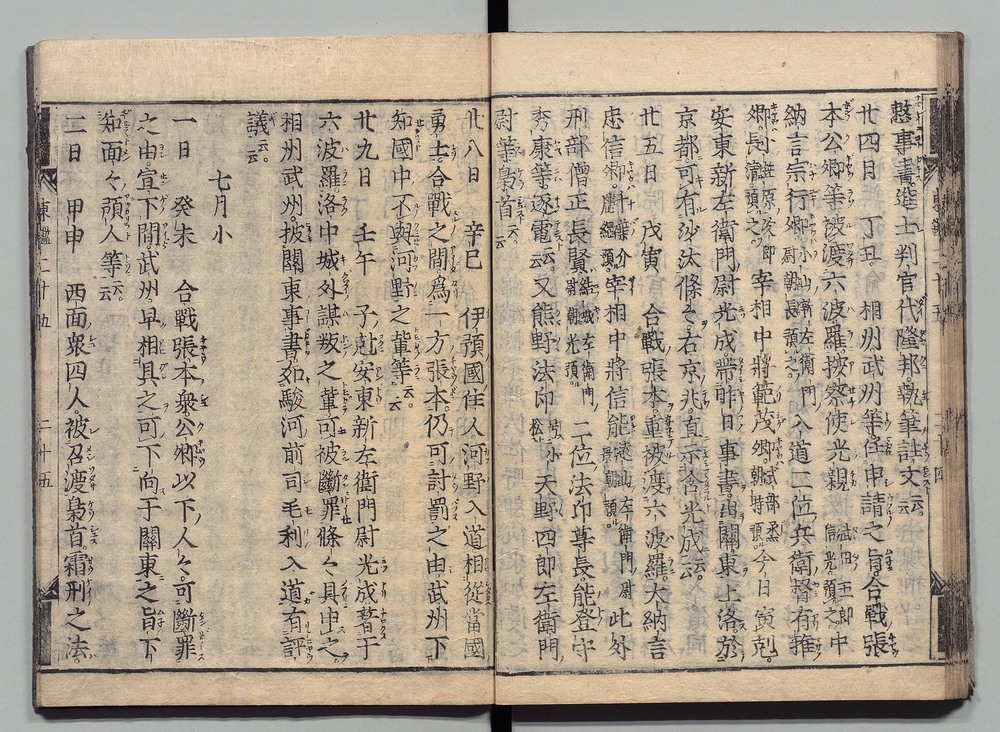 整事書進士判官代隆邦執筆註文云云
廿四日 丁丑 相州武州等任申請之旨合戰張
本公卿等被渡六波羅按察使光親武田五郎信光預之中
納言宗行卿小山新左衛門尉朝長預之入道二位兵衛督有雅
卿小笠原次郎長清預之宰相中將範茂卿式部丞朝時預今日寅剋
安東新左衛門尉光成帶昨日事書出關東上洛於
京都可有沙汰條々右京兆直示含光成云云
廿五日 戊寅 合戰張本重被渡六波羅大納言
忠信卿千葉介胤綱預宰相中將信能遠山左衛門尉景朝預此外
刑部僧正長賢結城左衛門尉朝光預二位法印尊長能登守
秀康等逐電云云又熊野法印天野四郎左衛門
尉等梟首云云
廿八日 辛巳 伊預國住人河野入道相從當國
勇士合戰之間爲一方張本仍可討罰之由武州下
知國中不與河野之輩等云云
廿九日 壬午 子剋安東新左衛門尉光成著于
六波羅洛中城外謀叛之輩可被斷罪條々具申之
相州武州披關東事書如駿河前司毛利入道有評
議云云
七月小
一日 癸未 合戰張本衆公卿以下人々可斷罪
之由宣下間武州早相具之可下向于關東之旨下
知面々預人等云云
二日 甲申 西面衆四人被召渡梟首霜刑之法
東鑑二十五 二十五